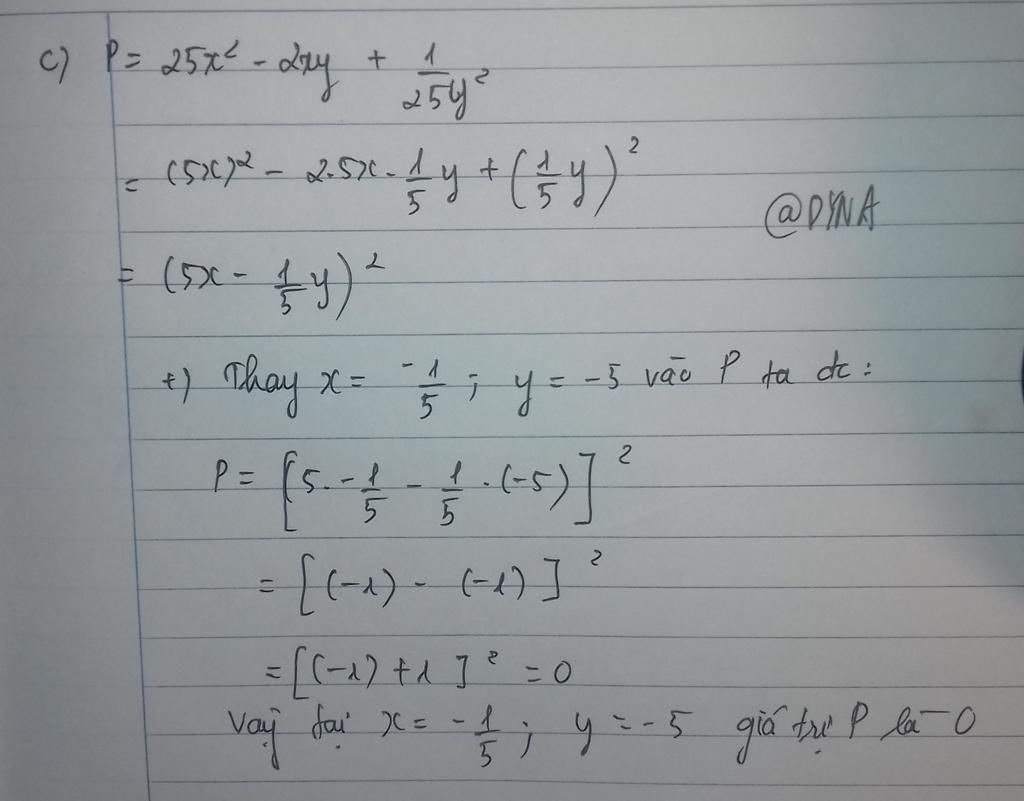 c) P = 25x² - 2xy + 1/25y²
= (5x)² - 2.5x. 1/5 y + (1/5 y)²
@DYNA
= (5x - 1/5 y)²
+) Thay x = -1/5 ; y = -5 vào P ta đc :
P = [5. -1/5 - 1/5 . (-5)]²
= [(-1) - (-1)]²
= [(-1) + 1]² = 0
Vậy tại x = -1/5 ; y = -5 giá trị P là 0